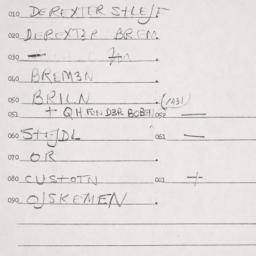 010 DEREXTER S+LEJF
020 DEREXT3R BREM.
030 —
040 BREM3N
050 BRILN
051 + QH FON D3R BOBE 052 —
060 S+EJDL 061 —
070 OR
080 CUSTOTN 081 +
090 OJSKEMEN